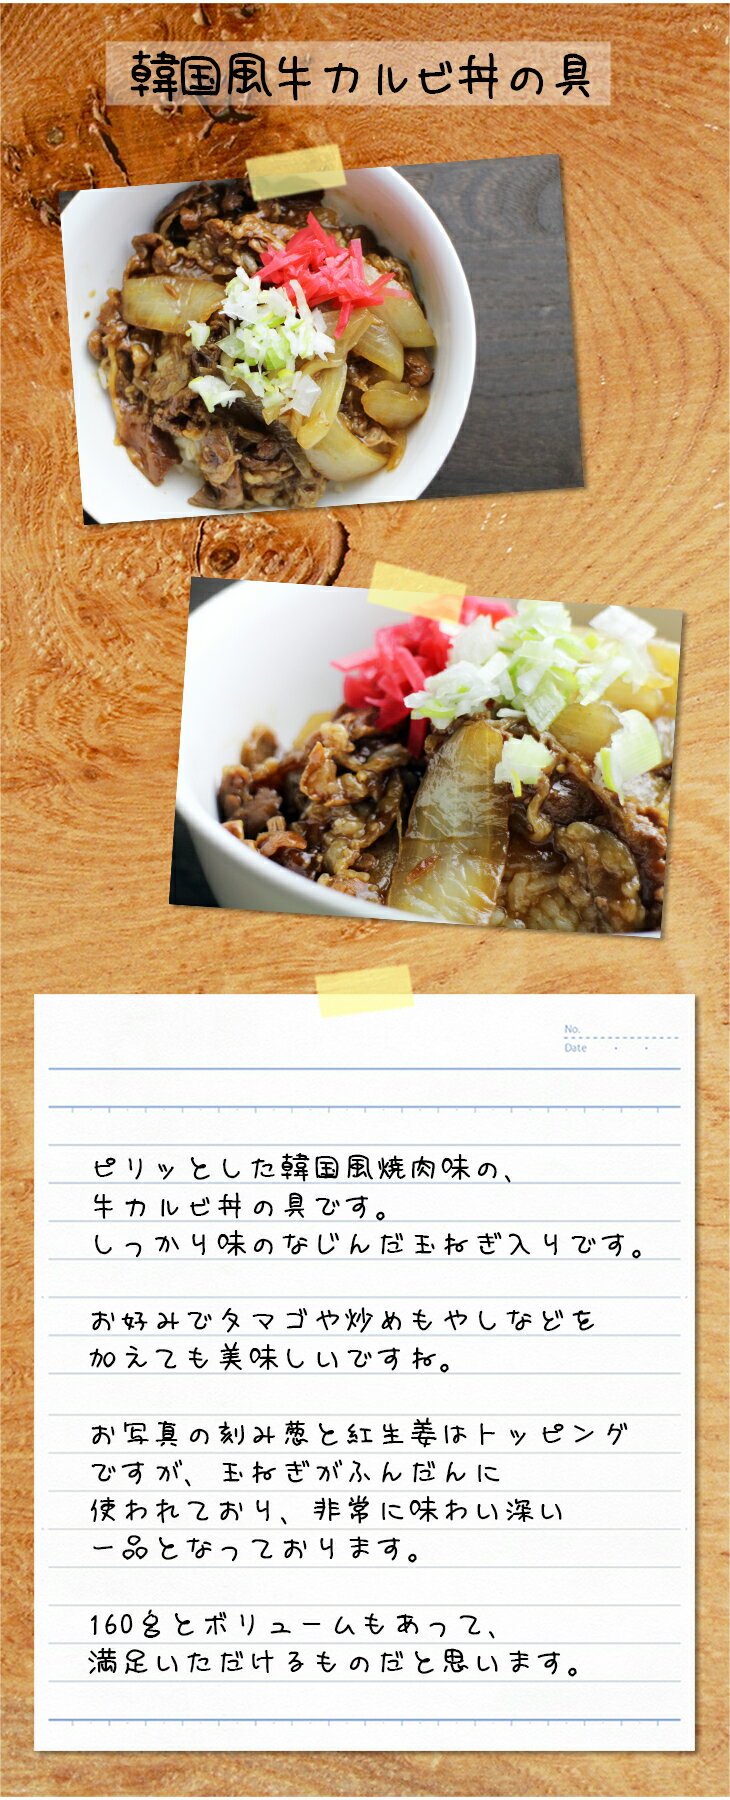 韓国風牛カルビ丼の具
No.
Date
ピリッとした韓国風焼肉味の、
牛カルビ丼の具です。
しっかり味のなじんだ玉ねぎ入りです。
お好みでタマゴや炒めもやしなどを
加えても美味しいですね。
お写真の刻み葱と紅生姜はトッピング
ですが、玉ねぎがふんだんに
使われており、非常に味わい深い
一品となっております。
160gとボリュームもあって、
満足いただけるものだと思います。